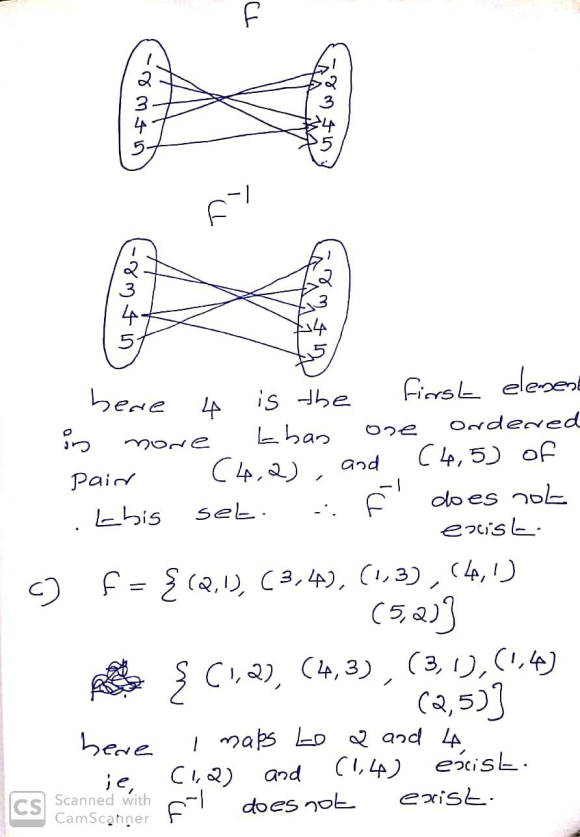 f
1 1
2 2
3 3
4 4
5 5
f⁻¹
1 1
2 2
3 3
4 4
5 5
here 4 is the first element
in more than one ordered
pair (4,2), and (4,5) of
. this set. ∴ f⁻¹ does not
exist.
c) f = { (2,1), (3,4), (1,3), (4,1)
(5,2)}
{ (1,2), (4,3), (3,1), (1,4)
(2,5)}
here 1 maps to 2 and 4,
ie, (1,2) and (1,4) exist.
∴ f⁻¹ does not exist.
CS Scanned with
CamScanner